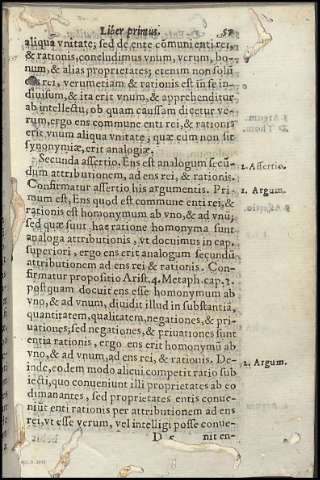 Liber primus. 57
aliqua vnitate; sed de ente cõmuni enti rei,
& rationis, concludimus vnum, verum, bo-
num, & alias proprietates; etenim non solũ
rei, verumetiam & rationis est in se in-
diuisum, & ita erit vnum, & apprehenditur
ab intellectu, ob quam caussam dicetur ve-
rum, ergo ens commune enti rei, & rationis
erit vnum aliqua vnitate, quæ cum non sit
synonymiæ, erit analogiæ.
Secunda assertio. Ens est analogum secũ-
dum attributionem, ad ens rei, & rationis.
Confirmatur assertio his argumentis. Pri-
mum est, Ens quod est commune enti rei, &
rationis est homonymum ab vno, & ad vnũ;
sed quæ sunt hac ratione homonyma sunt
analoga attributionis, vt docuimus in cap.
superiori, ergo ens erit analogum secundũ
attributionem ad ens rei & rationis. Con-
firmatur propositio Arist. 4. Metaph. cap. 2.
postquam docuit ens esse homonymum ab
vno, & ad vnum, diuidit illud in substantiã,
quantitatem, qualitatem, negationes, & pri-
uationes; sed negationes, & priuationes sunt
entia rationis, ergo ens erit homonymũ ab
vno, & ad vnum, ad ens rei, & rationis. De-
inde, eodem modo alicui competit ratio sub
iecti, quo conueniunt illi proprietates ab eo
dimanantes, sed proprietates entis conue-
niũt enti rationis per attributionem ad ens
rei, vt esse verum, vel intelligi posse conue-
D 5 nit en-
2. Assertio.
1. Argum.
2. Argum.